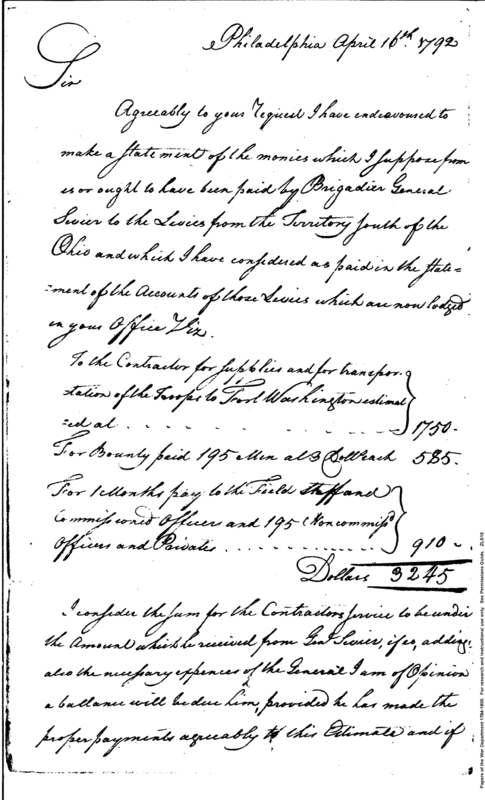 Philadelphia April 16th. 1792
Sir
Agreeably to your request I have endeavoured to
make a statement of the monies which I suppose from
is or ought to have been paid by Brigadier General
Sevier to the Levies from the Territory South of the
Ohio and which I have considered as paid in the state=
=ment of the Accounts of those Levies which are now lodged
in your Office Viz.
To the Contractor for supplies and for transpor-
=tation of the Troops to Fort Washington estimat
=ed at . . . . . . . . . . . . . . . 1750-
For Bounty paid 195 Men at 3 Dollrs each 585.
For 1 Months pay to the Field Staff and
Commissioned Officers and 195 Noncommissd
Officers and Privates . . . . . . . . . . . . . 910-.
Dollars 3245
I consider the sum for the Contractors service to be under
the Amount which he received from Genl Sevier, if so, adding
also the necessary expences of the General I am of Opinion
a ballance will be due him, provided he has made the
proper payments agreeably to this Estimate and if
Papers of the War Department 1784-1800. For research and instructional use only. See Permissions Guide. ZLS16